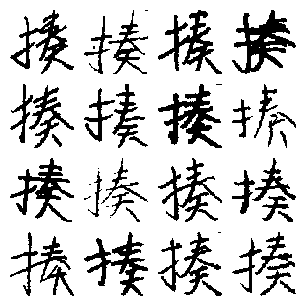 揍揍揍揍
揍揍揍揍
揍揍揍揍
揍揍揍揍